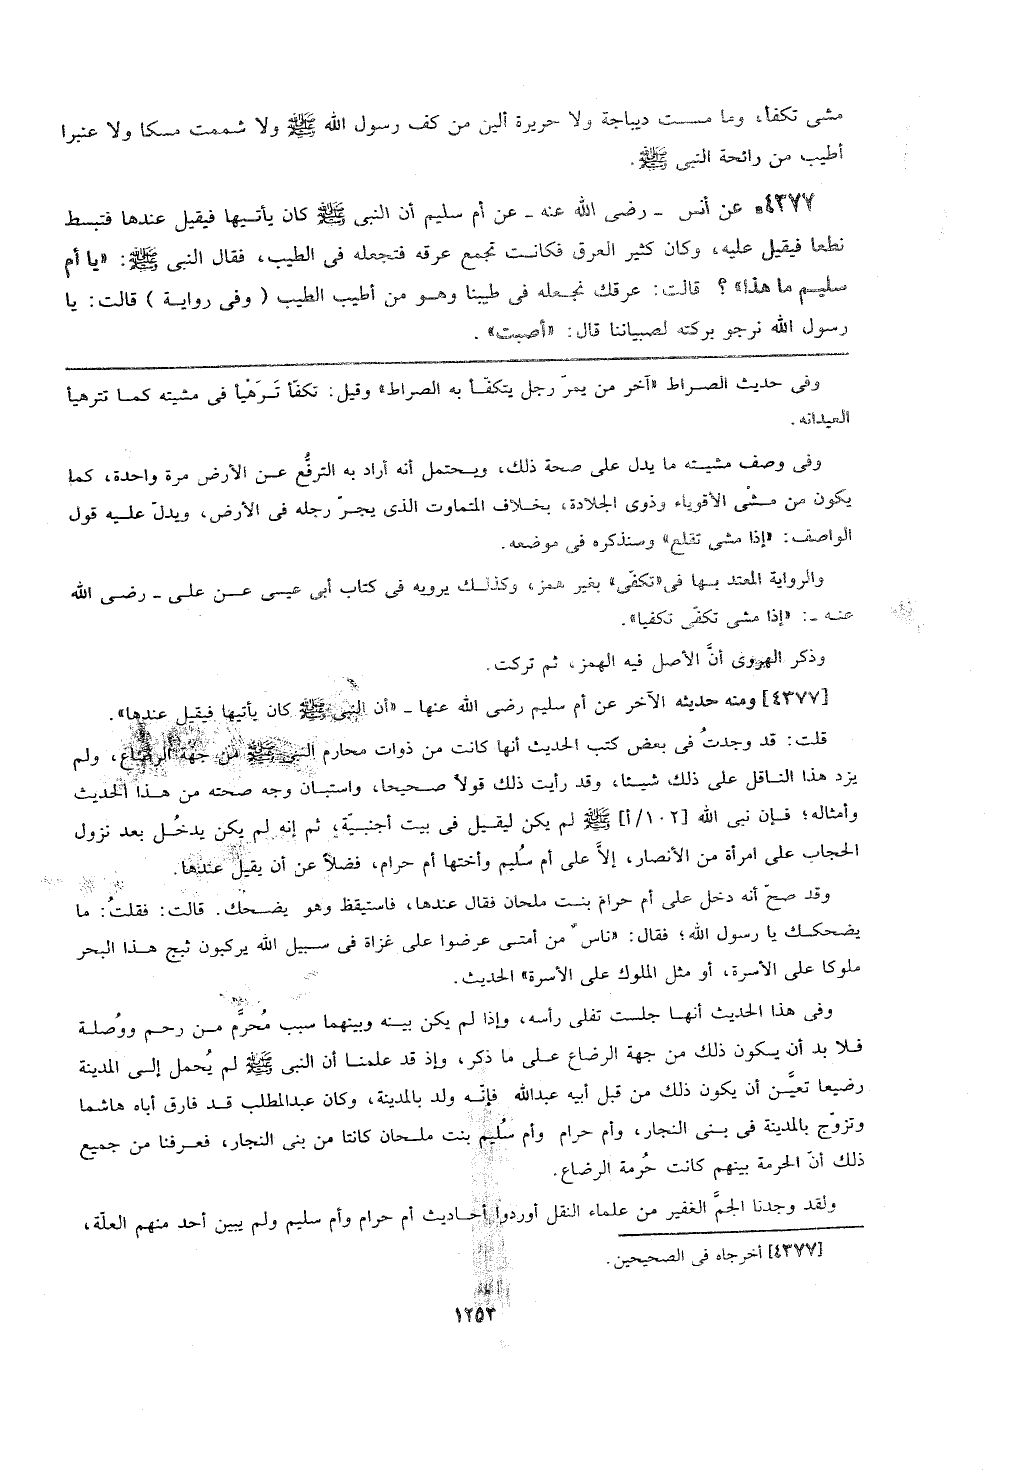 مشى تكفأ، وما مست ديباجة ولا حريرة ألين من كف رسول الله ﷺ ولا شممت مسكا ولا عنبرا
أطيب من رائحة النبى ﷺ.
٤٣٧٧* عن أنس ـ رضى الله عنه ـ عن أم سليم أن النبى ﷺ كان يأتيها فيقيل عندها فتبسط
نطعا فيقيل عليه، وكان كثير العرق فكانت تجمع عرقه فتجعله فى الطيب، فقال النبى ﷺ: «يا أم
سليم ما هذا» ؟ قالت: عرقك نجعله فى طيبنا وهو من أطيب الطيب ( وفى رواية ) قالت: يا
رسول الله نرجو بركته لصبياننا قال: «أصبت» .
وفى حديث الصراط «آخر من يمرّ رجل يتكفّأ به الصراط» وقيل: تكفّأ تَرَهْيأ فى مشيته كما تترهيأ
العيدانه.
وفى وصف مشيته ما يدل على صحة ذلك، ويحتمل أنه أراد به الترفُّع عن الأرض مرة واحدة، كما
يكون من مشْى الأقوياء وذوى الجلادة، بخلاف المتماوت الذى يجرّ رجله فى الأرض، ويدلّ عليه قول
الواصف: «إذا مشى تقلع» وسنذكره فى موضعه.
والرواية المعتد بها فى«تكفّى» بغير همز، وكذلك يرويه فى كتاب أبى عيسى عن على ـ رضى الله
عنه ـ: «إذا مشى تكفّى تكفيا».
وذكر الهروى أنَّ الأصل فيه الهمز، ثم تركت.
[٤٣٧٧] ومنه حديثه الآخر عن أم سليم رضى الله عنها ـ «أن النبى ﷺ كان يأتيها فيقيل عندها».
قلت: قد وجدتُ فى بعض كتب الحديث أنها كانت من ذوات محارم النبى ﷺ من جهة الرضاع، ولم
يزد هذا الناقل على ذلك شيئا، وقد رأيت ذلك قولاً صحيحا، واستبان وجه صحته من هذا الحديث
وأمثاله؛ فإن نبى الله [١٠٢/أ] ﷺ لم يكن ليقيل فى بيت أجنبيّة؛ ثم إنه لم يكن يدخُل بعد نزول
الحجاب على امرأة من الأنصار، إلاَّ على أم سُليم وأختها أم حرام، فضلاً عن أن يقيل عندها.
وقد صحّ أنه دخل على أم حرام بنت ملحان فقال عندها، فاستيقظ وهو يضحك. قالت: فقلتُ: ما
يضحكك يا رسول الله؛ فقال: «ناس ٌ من أمتى عرضوا على غزاة فى سبيل الله يركبون ثبج هذا البحر
ملوكا على الأسرة، أو مثل الملوك على الأسرة» الحديث.
وفى هذا الحديث أنها جلست تفلى رأسه، وإذا لم يكن بينه وبينهما سبب مُحرَّم من رحم ووُصلة
فلا بد أن يكون ذلك من جهة الرضاع على ما ذكر، وإذ قد علمنا أن النبى ﷺ لم يُحمل إلى المدينة
رضيعا تعيَّن أن يكون ذلك من قبل أبيه عبدالله فإنّه ولد بالمدينة، وكان عبدالمطلب قد فارق أباه هاشما
وتزوّج بالمدينة فى بنى النجار، وأم حرام وأم سُليم بنت ملحان كانتا من بنى النجار، فعرفنا من جميع
ذلك أنّ الحرمة بينهم كانت حُرمة الرضاع.
ولقد وجدنا الجمَّ الغفير من علماء النقل أوردوا أحاديث أم حرام وأم سليم ولم يبين أحد منهم العلّة،
[٤٣٧٧] أخرجاه فى الصحيحين.
١٢٥٣